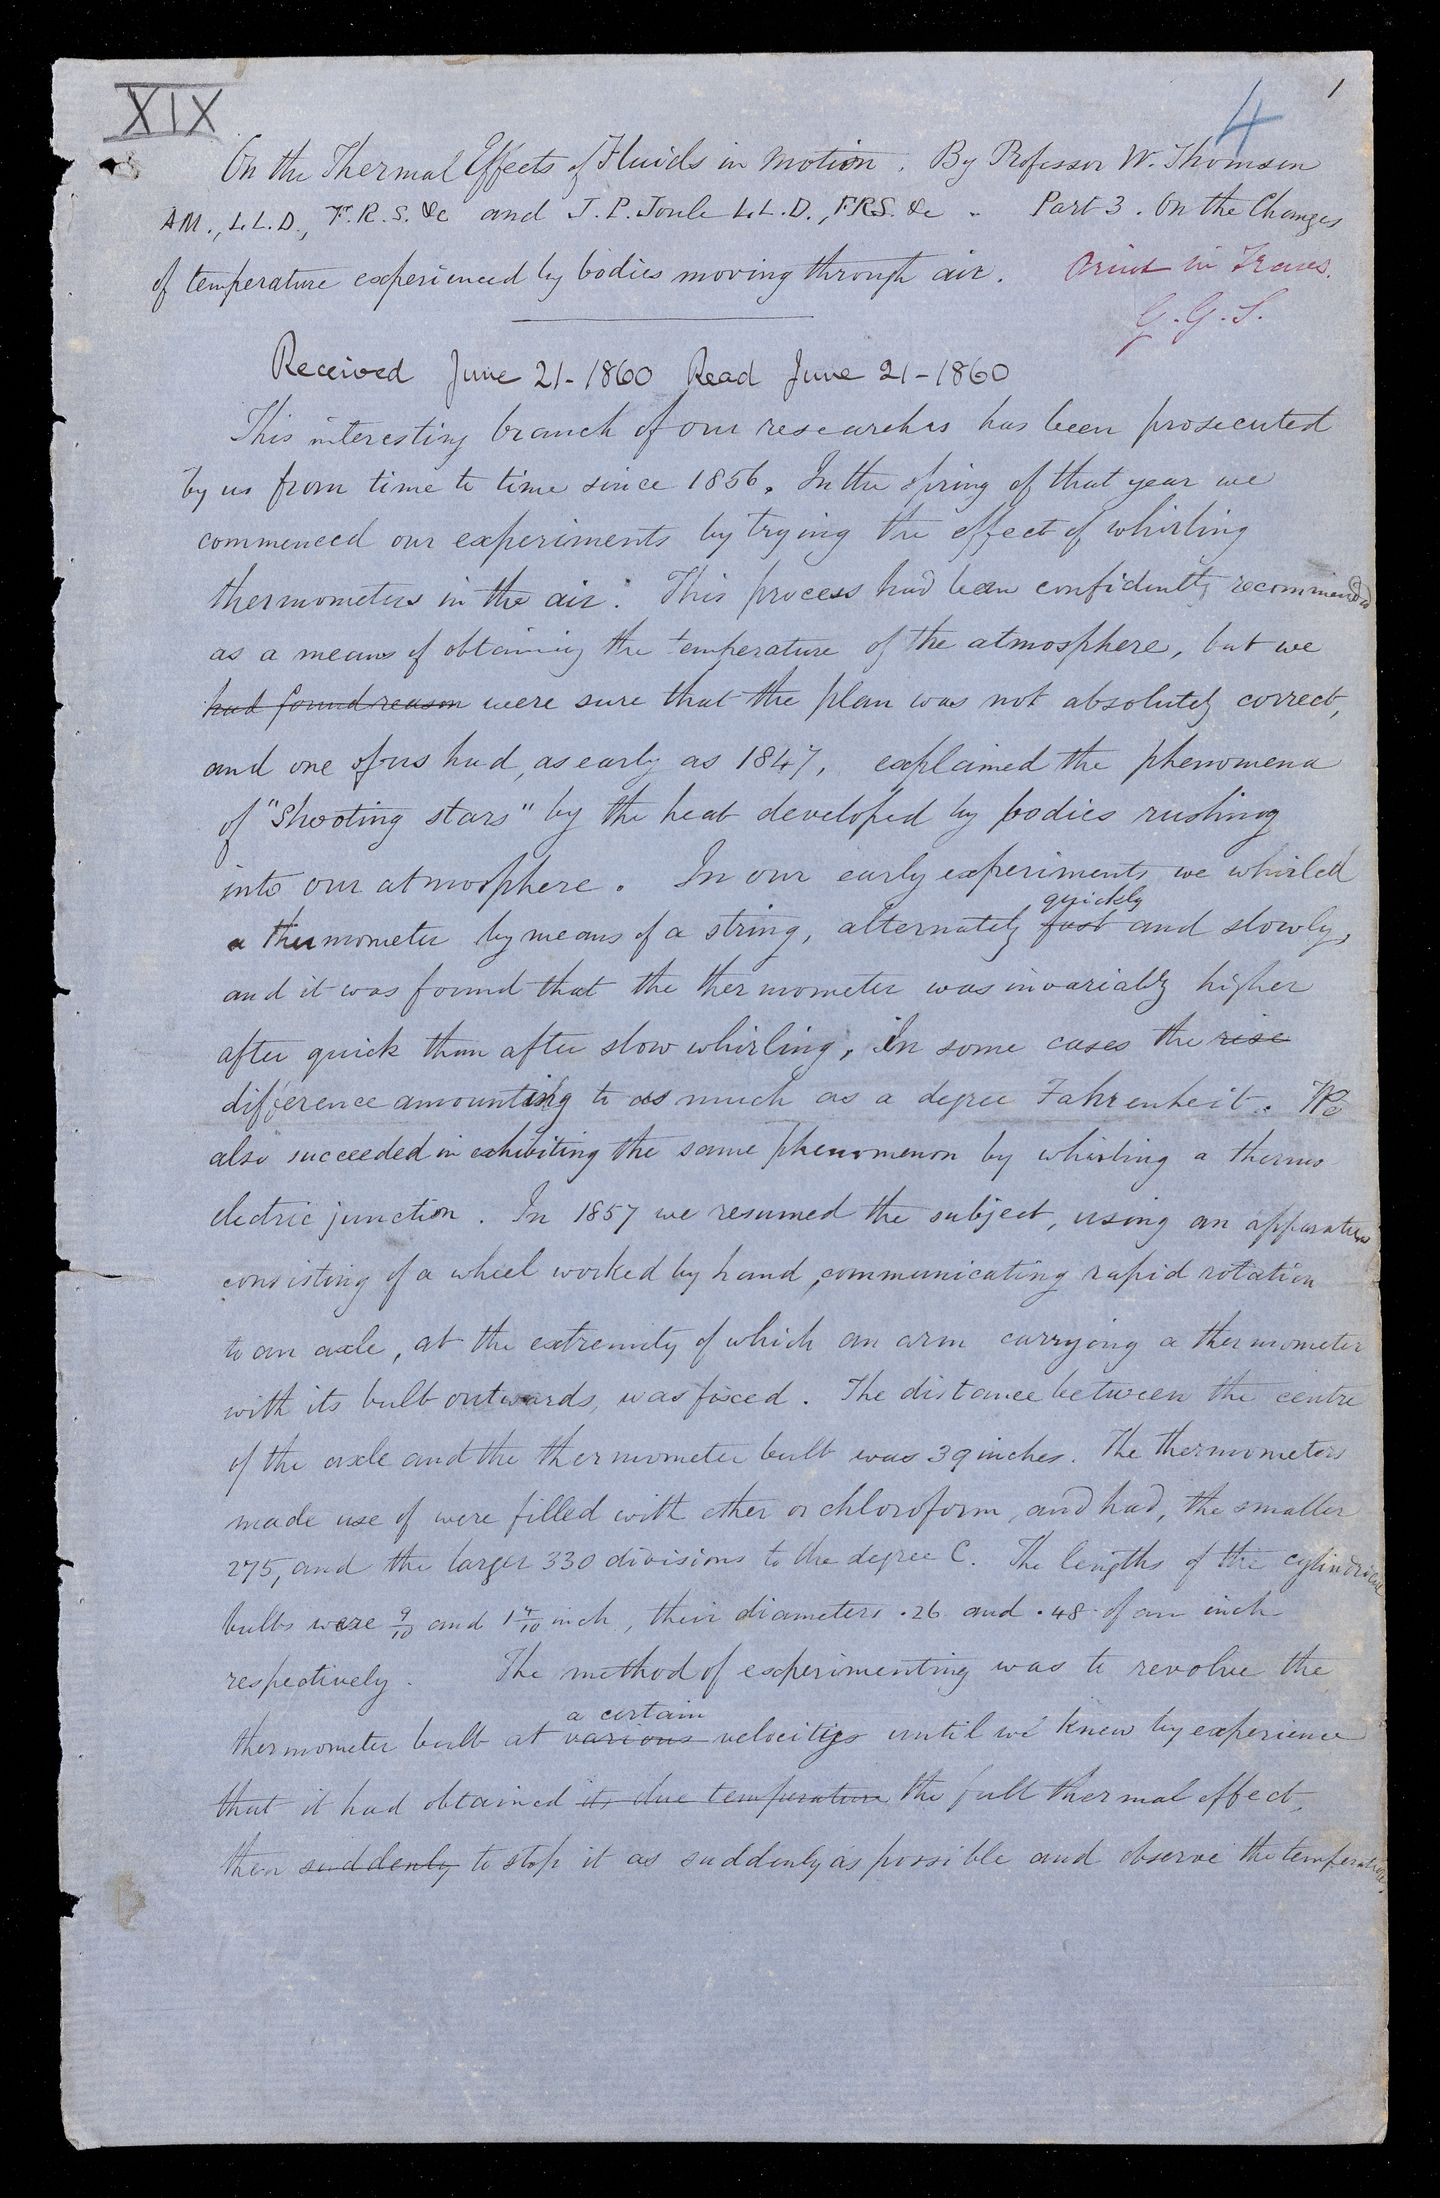 XIX
4
1
On the Thermal Effects of Fluids in Motion. By Professor W. Thomson
A.M., L.L.D., F.R.S. &c and J. P. Joule L.L.D., F.R.S. &c. Part 3. On the Changes
of temperature experienced by bodies moving through air.
Print in Trans.
G. G. S.
Received June 21 - 1860 Read June 21 - 1860
This interesting branch of our researches has been prosecuted
by us from time to time since 1856. In the spring of that year we
commenced our experiments by trying the effect of whirling
thermometers in the air. This process had been confidently recommended
as a means of obtaining the temperature of the atmosphere, but we
had found reason were sure that the plan was not absolutely correct,
and one of us had, as early as 1847, explained the phenomena
of "Shooting stars" by the heat developed by bodies rushing
into our atmosphere. In our early experiments we whirled
quickly
a thermometer by means of a string, alternately fast and slowly,
and it was found that the thermometer was invariably higher
after quick than after slow whirling, in some cases the rise
difference amounting to as much as a degree Fahrenheit. We
also succeeded in exhibiting the same phenomenon by whirling a thermo
electric junction. In 1857 we resumed the subject, using an apparatus
consisting of a wheel worked by hand, communicating rapid rotation
to an axle, at the extremity of which an arm carrying a thermometer
with its bulb outwards, was fixed. The distance between the centre
of the axle and the thermometer bulb was 39 inches. The thermometers
made use of were filled with ether or chloroform, and had, the smaller
275, and the larger 330 divisions to the degree C. The lengths of the cylindrical
bulbs were 9/10 and 1 4/10 inch, their diameters .26 and .48 of an inch
respectively. The method of experimenting was to revolve the
a certain
thermometer bulb at various velocities until we knew by experience
that it had obtained its due temperature the full thermal effect,
then suddenly to stop it as suddenly as possible and observe the temperature.